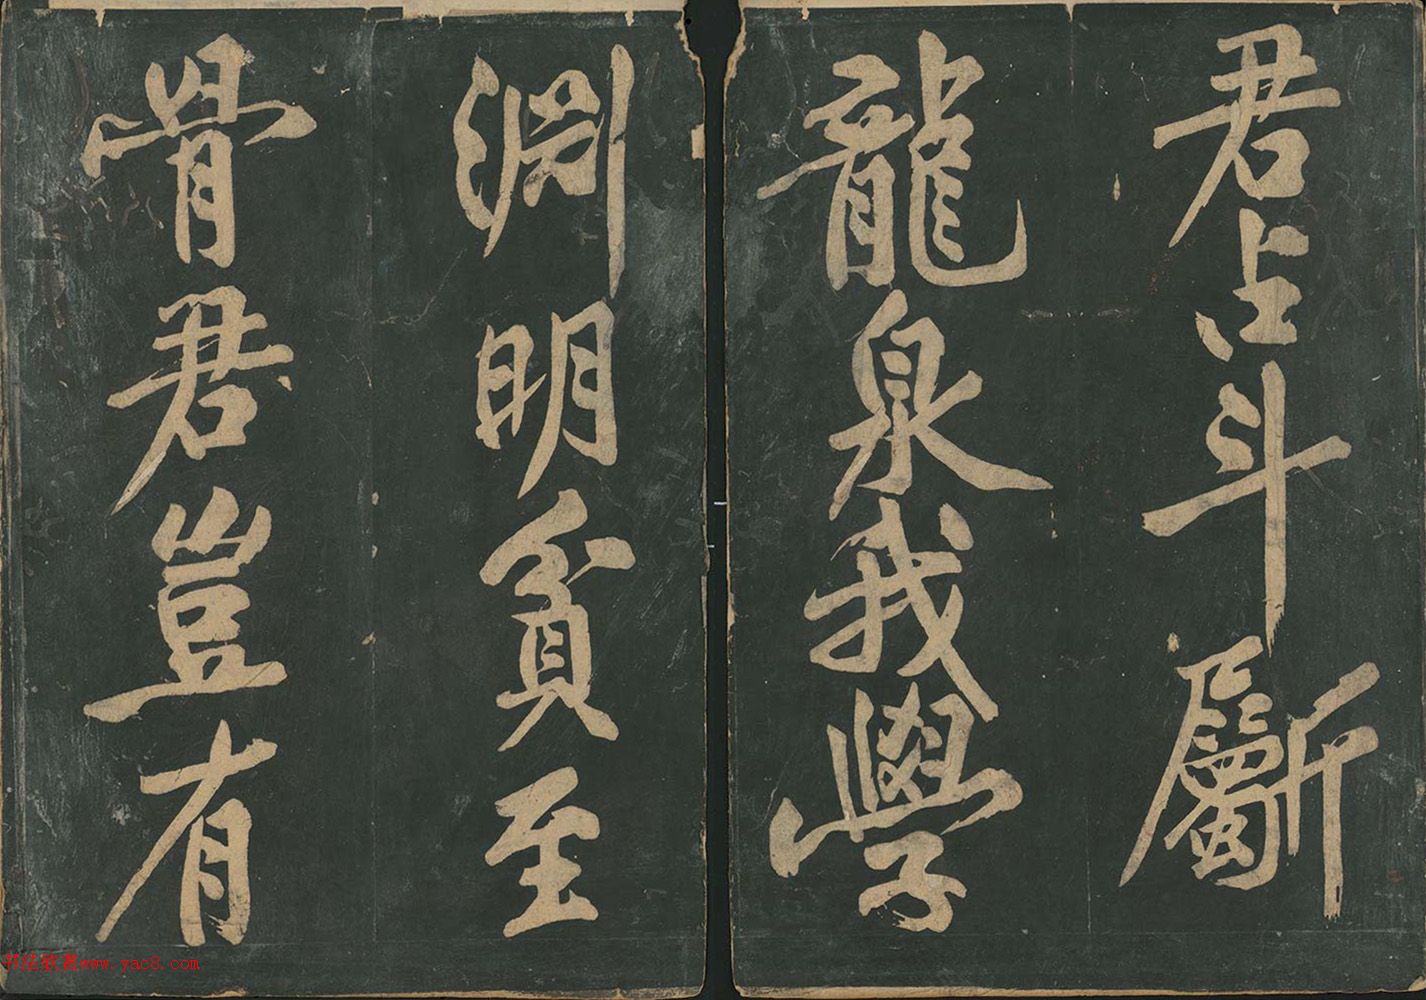 君占斗斸
龍泉我學
淵明貧至
骨君豈有
书法欣赏www.yac8.com